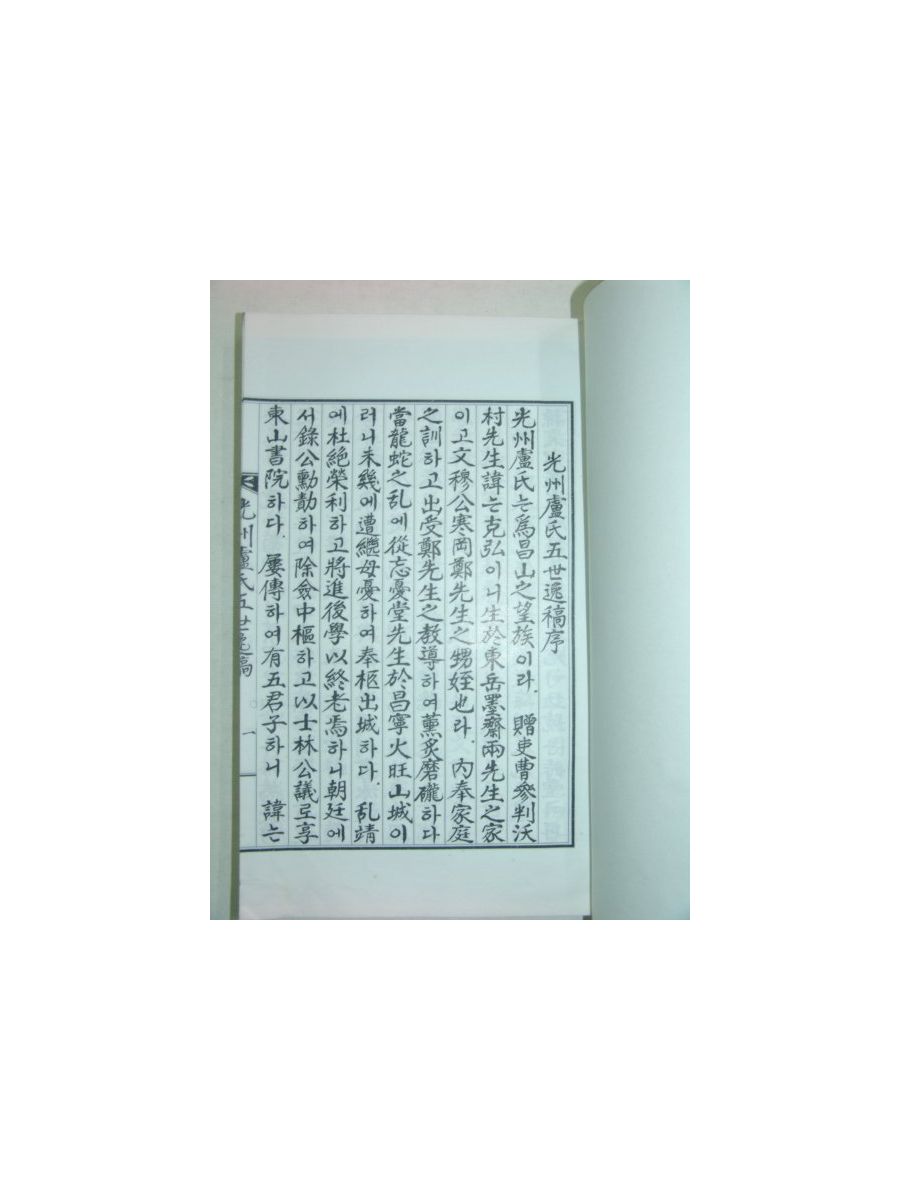 光州盧氏五世逸稿序
光州盧氏는爲昌山之望族이라. 贈吏曹參判沃
村先生諱는克弘이니生於東岳墨齋兩先生之家
이고文穆公寒岡鄭先生之甥姪也라. 內奉家庭
之訓하고出受鄭先生之敎導하여薰炙磨礲하다
當龍蛇之乱에從忘憂堂先生於昌寧火旺山城이
러니未幾에遭繼母憂하여奉柩出城하다. 乱靖
에杜絶榮利하고將進後學以終老焉하니朝廷에
서錄公勳勣하여除僉中樞하고以士林公議로享
東山書院하다. 屢傳하여有五君子하니 諱는
光州盧氏五世逸稿 一